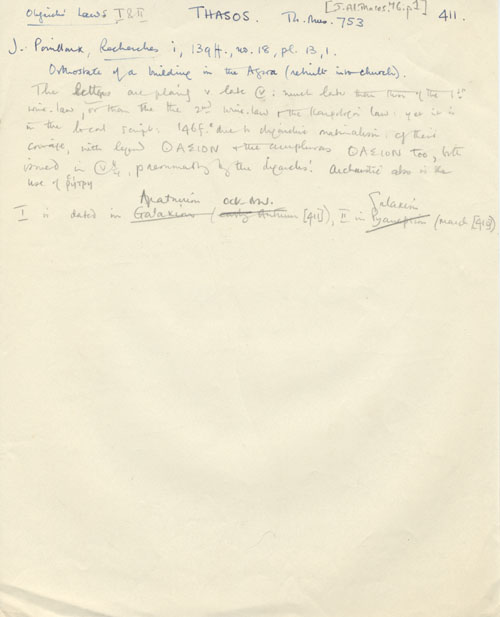 Oligarchic Laws I & II THASOS. Th. Mus. 753 [J. 1] 411.
J. Pouilloux, Recherches i, 139 ff., no. 18, pl. 13, 1.
Orthostate of a building in the Agora (rebuilt into church).
The letters are plainly v. late V: much later than those of the 1st
wine-law, or than the the 2nd wine-law & the law: yet it is
in the local script: '146 f. due to oligarchic nationalism: cf their
coinage, with legend ΘΑΣΙΟΝ & the amphoras ΘΑΣΙΟΝ too, both
issued in V 4/4, presumably by the oligarchs'. Archaistic also is the
use of
Apaturion Oct. Nov. Galaxion
I is dated in Galaxion (early Autumn [411]), II in Pyanepsion (March [410])